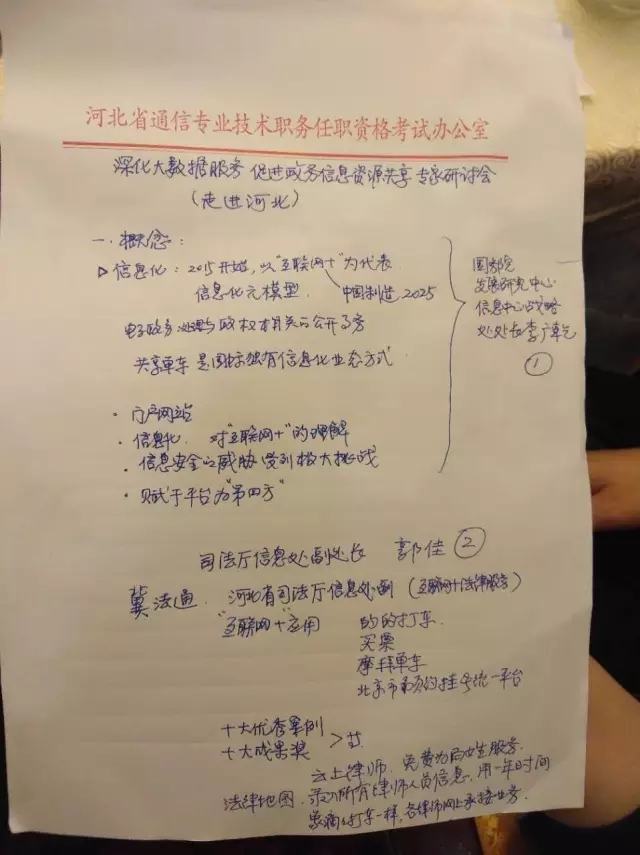 河北省通信专业技术职务任职资格考试办公室
深化大数据服务 促进政务信息资源共享 专家研讨会
（走进河北）
一.概念：
信息化：2015开始，以"互联网+"为代表
信息化元模型 中国制造2025
电子政务 政权相关的公开
共享单车 是国内独有信息化业态方式
国务院
发展研究中心
信息中心战略
处处长李广乾
①
· 门户网站
· 信息化. 对"互联网+"的理解
· 信息安全的威胁 受到极大挑战
· 赋于平台为"第四方"
司法厅信息处副处长 郭佳 ②
冀法通. 河北省司法厅信息处副（互联网+法律服务）
"互联网+"应用 的的打车.
买票
摩拜单车
北京市 挂号统一平台
十大优秀案例
十大成果奖
云上律师. 免费为 服务.
法律地图. 录入所有律师人员信息，用一年时间
象滴打车一样，各律师网上承接业务.